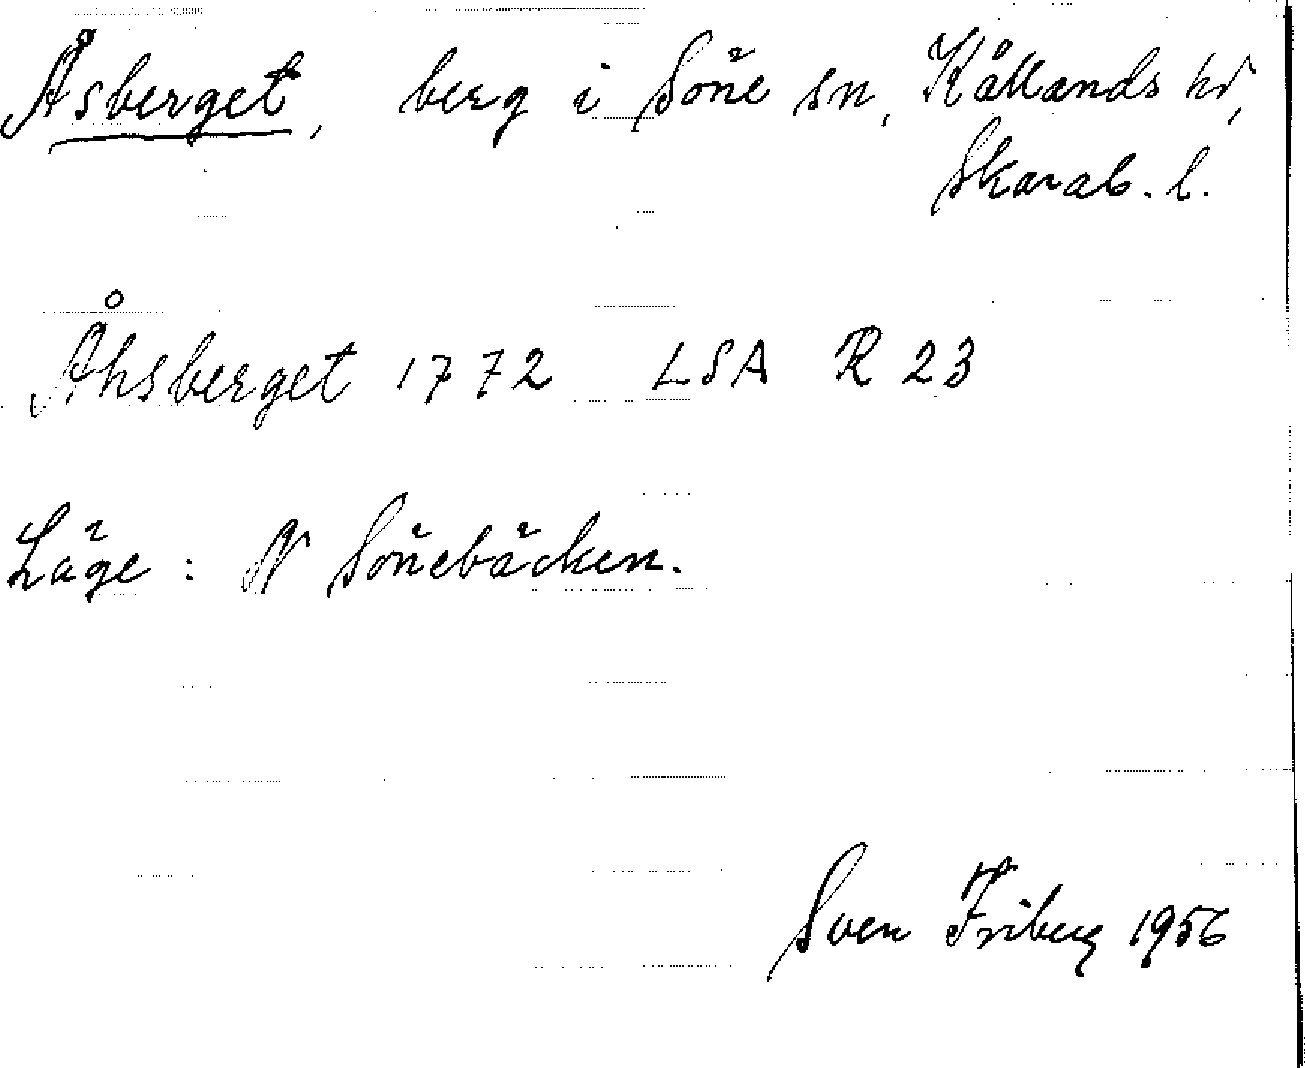 Åsberget, berg i Söne sn, Kållands hd,
Skarab. l.
Åhsberget 1772 LSA R 23
Läge: N Sönebäcken.
Sven Friberg 1956